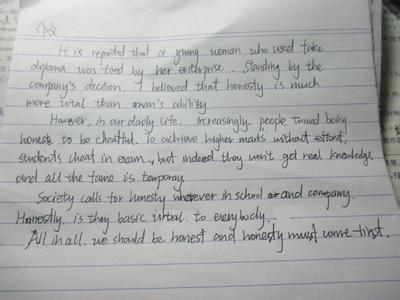 It is reported that a young woman who used fake
diploma was fired by her enterprise. Standing by the
company's decision, I believed that honesty is much
more vital than onan's ability.
However, in our daoly life, increasingly people turned being
honest to be cheatful. To achieve higher marks without effort,
students cheat in exam., but indeed they won't get real knowledge
and all the fame is temporay
Society calls for honesty wherever in school and company.
Honestly, is they basic to everybody.
All in all, we should be honest and honesty must come first.